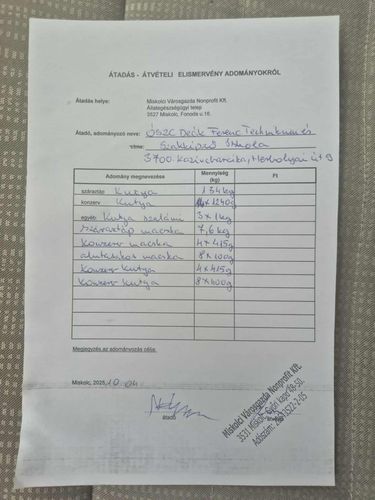 ÁTADÁS - ÁTVÉTELI ELISMERVÉNY ADOMÁNYOKRÓL
Átadás helye: Miskolci Városgazda Nonprofit Kft.
Állategészségügyi telep
3527 Miskolc, Fonoda u.16.
Átadó, adományozó neve: ÓSZC Deák Ferenc Technikum és
címe: Szakképző Iskola
3700. Kazincbarcika, Herbolyai út 9
Adomány megnevezése Mennyiség (kg) Ft
száraztáp Kutya 134kg
konzerv Kutya x1240g
egyéb: Kutya szalámi 3x1kg
Száraztáp macska 7,6 kg
Konzerv macska 4x415g
alutasakos macska 8x100g
Konzerv Kutya 4x415g
Konzerv Kutya 8x400g
Megjegyzés,az adományozás célja:
Miskolc, 2025.10.04
átadó
Miskolci Városgazda Nonprofit Kft.
3531 Miskolc, Győri kapu 48-50.
Adószám: